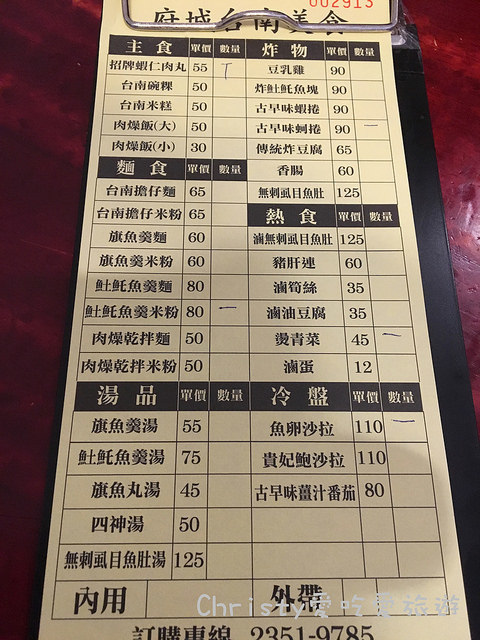 002913
府城台南美食
主食 單價 數量
招牌蝦仁肉丸 55 T
台南碗粿 50
台南米糕 50
肉燥飯(大) 50
肉燥飯(小) 30
麵食 單價 數量
台南擔仔麵 65
台南擔仔米粉 65
旗魚羹麵 60
旗魚羹米粉 60
魠魠魚羹麵 80
魠魠魚羹米粉 80 一
肉燥乾拌麵 50
肉燥乾拌米粉 50
湯品 單價 數量
旗魚羹湯 55
魠魠魚羹湯 75
旗魚丸湯 45
四神湯 50
無刺虱目魚肚湯 125
炸物 單價 數量
豆乳雞 90
炸魠魠魚塊 90
古早味蝦捲 90
古早味蚵捲 90 一
傳統炸豆腐 65
香腸 60
無刺虱目魚肚 125
熱食 單價 數量
滷無刺虱目魚肚 125
豬肝連 60
滷筍絲 35
滷油豆腐 35
燙青菜 45 一
滷蛋 12
冷盤 單價 數量
魚卵沙拉 110 一
貴妃鮑沙拉 110
古早味薑汁番茄 80
內用 外帶
訂購專線 2351-9785
Christy愛吃愛旅遊